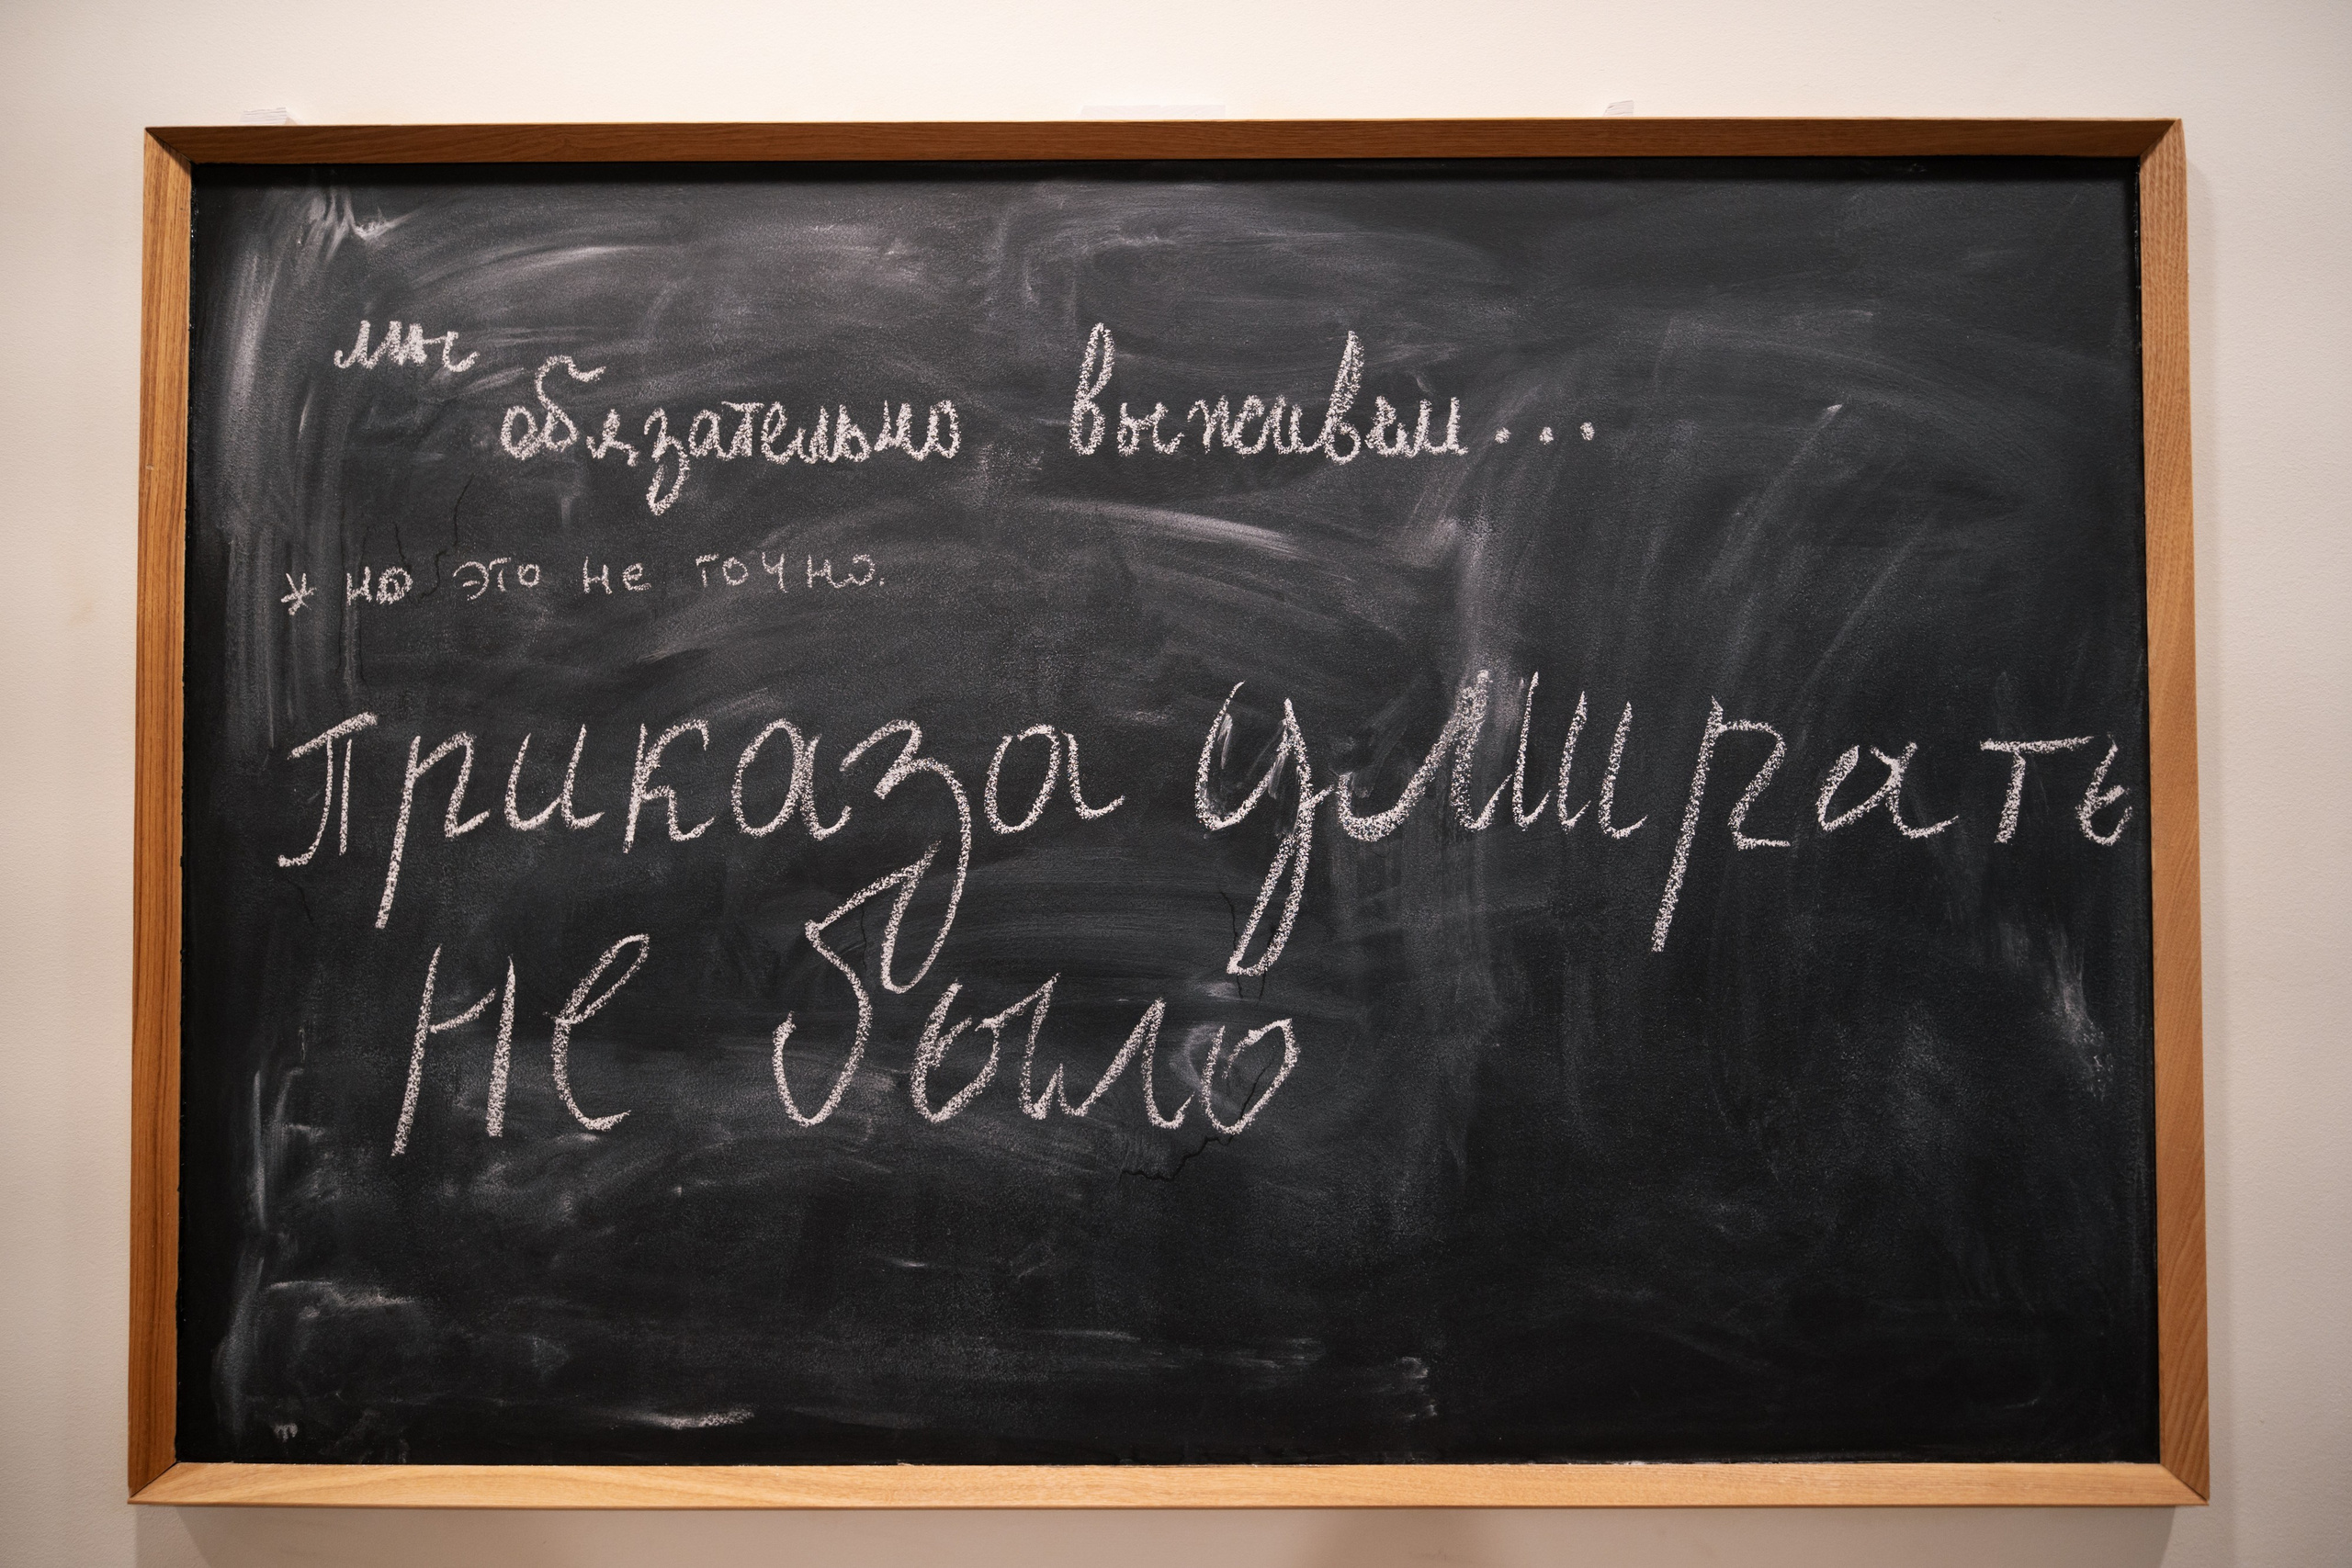 мы обязательно выживем...
* но это не точно.
Приказа умирать
не было